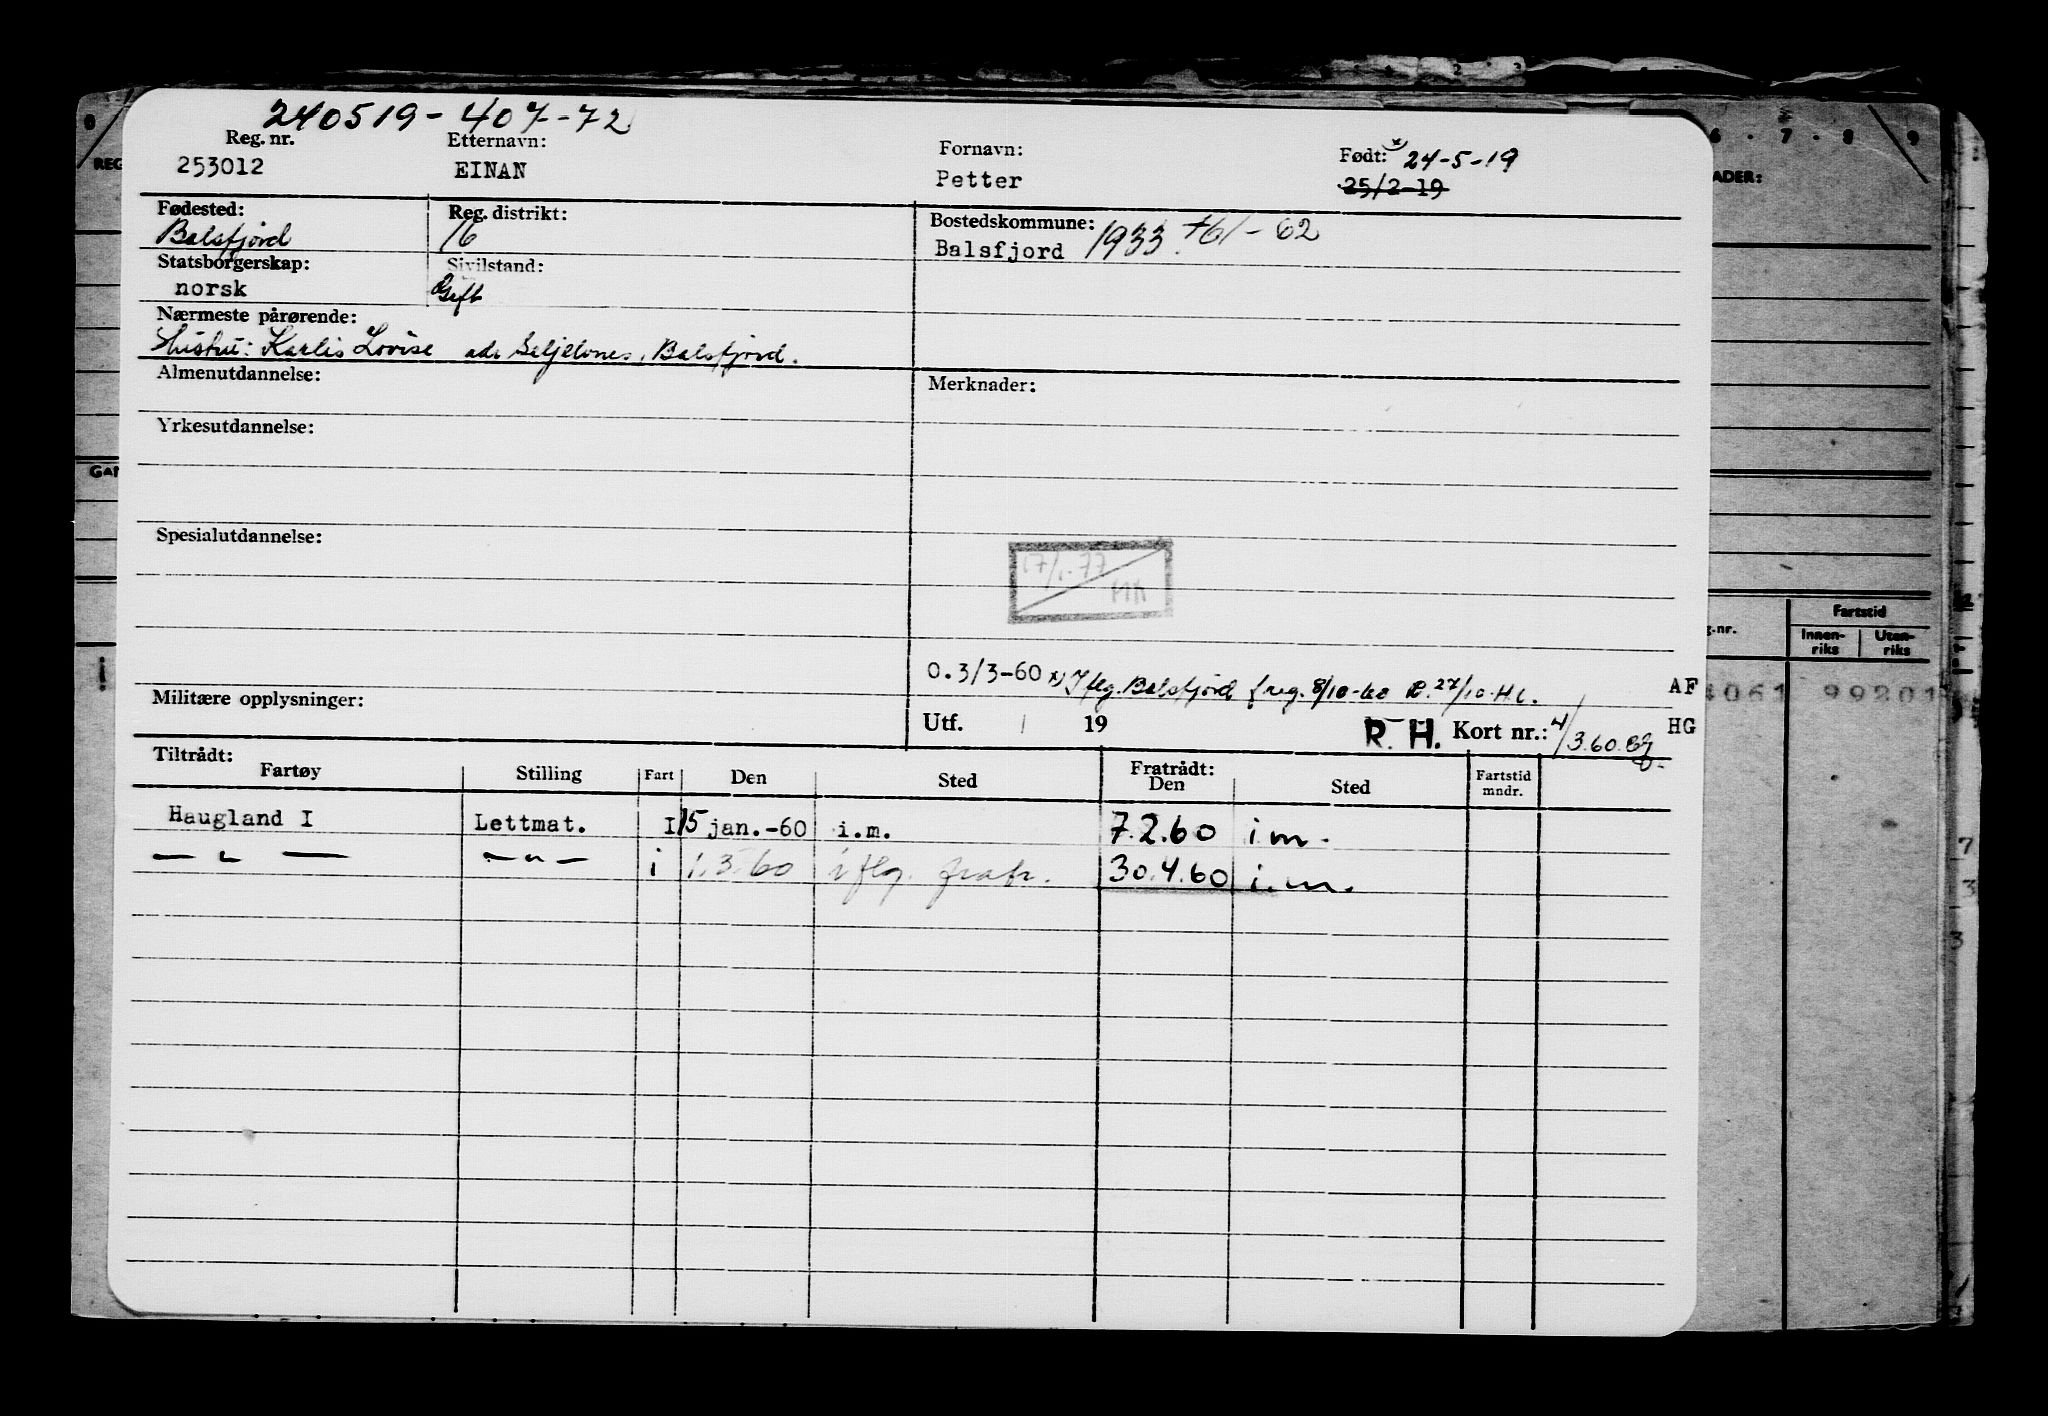 240519-407-72
Reg. nr. Etternavn: Fornavn: Født: x 24-5-19
253012 EINAN Petter 25/2-19
Fødested: Reg. distrikt: Bostedskommune:
Balsfjord 16 Balsfjord 1933 +61-62
Statsborgerskap: Sivilstand:
norsk Gift
Nærmeste pårørende:
Hustru: Karlis Lovise adr Seljelvnes, Balsfjord.
Almenutdannelse: Merknader:
Yrkesutdannelse:
Spesialutdannelse:
17/1-77
HK
0.3/3-60 x) Iflg. Balsfjord f.reg. 8/10-60 R. 27/10 H.L. AF
Militære opplysninger:
Utf. / 19 R. H. Kort nr.: 4/3.60. HG
Tiltrådt: Fratrådt:
Fartøy Stilling Fart Den Sted Den Sted Fartstid mndr.
Haugland I Lettmat. I 15 jan.-60 i.m. 7.2.60 i.m.
— " — — " — i 1.3.60 iflg. fratr. 30.4.60 i.m.
6 . 7 . 8 9
ADER:
REG
GAN
g.-nr.
Fartstid
Innen-riks Uten-riks
4061 99201